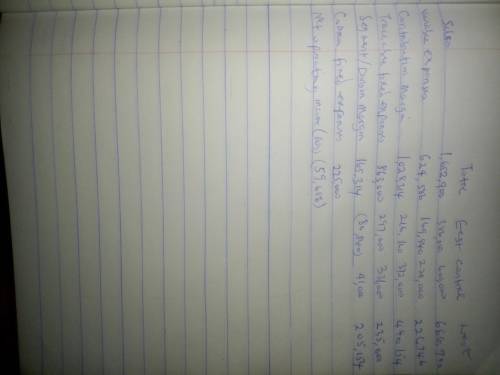 Total East Central West
Sales 1,652,900 386,000 600,000 666,900
variable expenses 624,586 169,840 228,000 226,746
Contribution Margin 1,028,314 216,160 372,000 440,154
Traceable fixed expenses 863,000 297,000 331,000 235,000
Segment/Division Margin 165,314 (80,840) 41,000 205,154
Common fixed expenses 225,000
Net operating income (loss) (59,686)